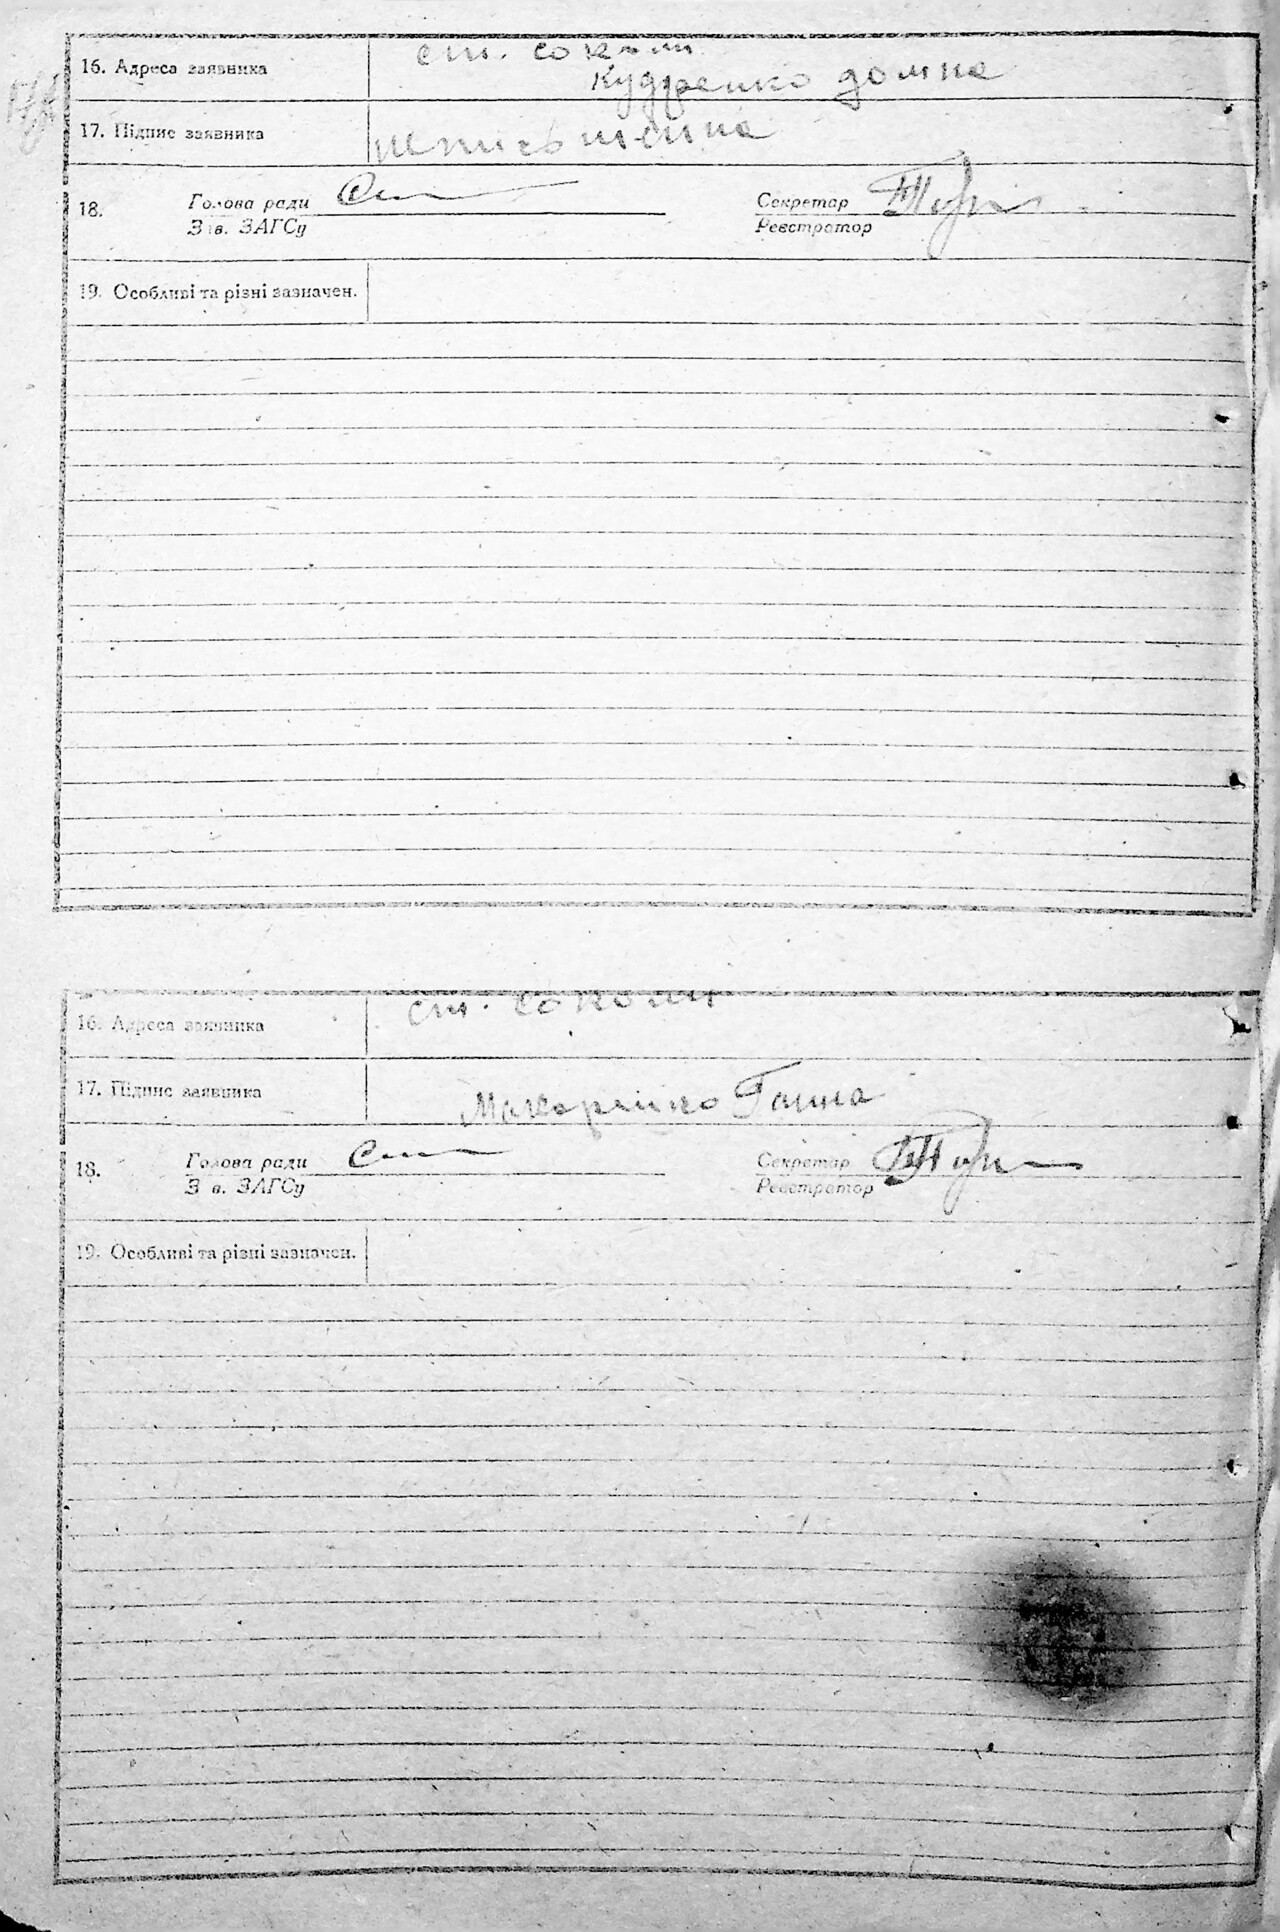 ст. соколи
16. Адреса заявника
Кудренко домна
17. Підпис заявника
18.
Голова ради
Зав. ЗАГСу
Секретар
Реєстратор
19. Особливі та різні зазначен.
ст. соколи
16. Адреса заявника
17. Підпис заявника
Макаренко Ганна
18.
Голова ради
Зав. ЗАГСу
Секретар
Реєстратор
19. Особливі та різні зазначен.